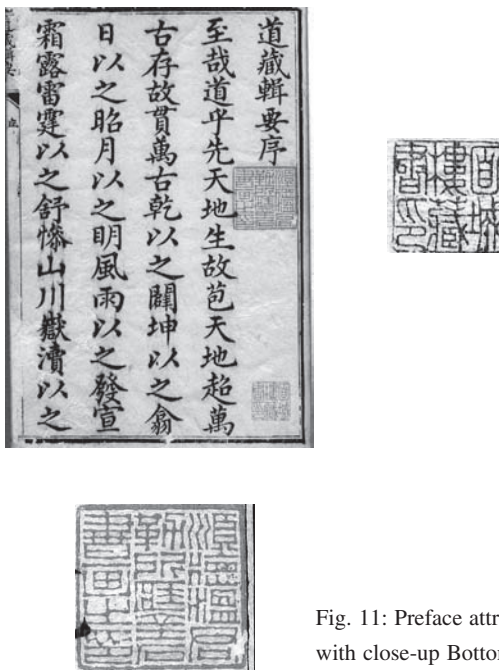 道藏輯要序
至哉道乎先天地生故苞天地超萬
古存故貫萬古乾以之闢坤以之翕
日以之昭月以之明風雨以之發宣
霜露雷霆以之舒慘山川嶽瀆以之
面城
樓藏
書印
Fig. 11: Preface attr
with close-up Botto